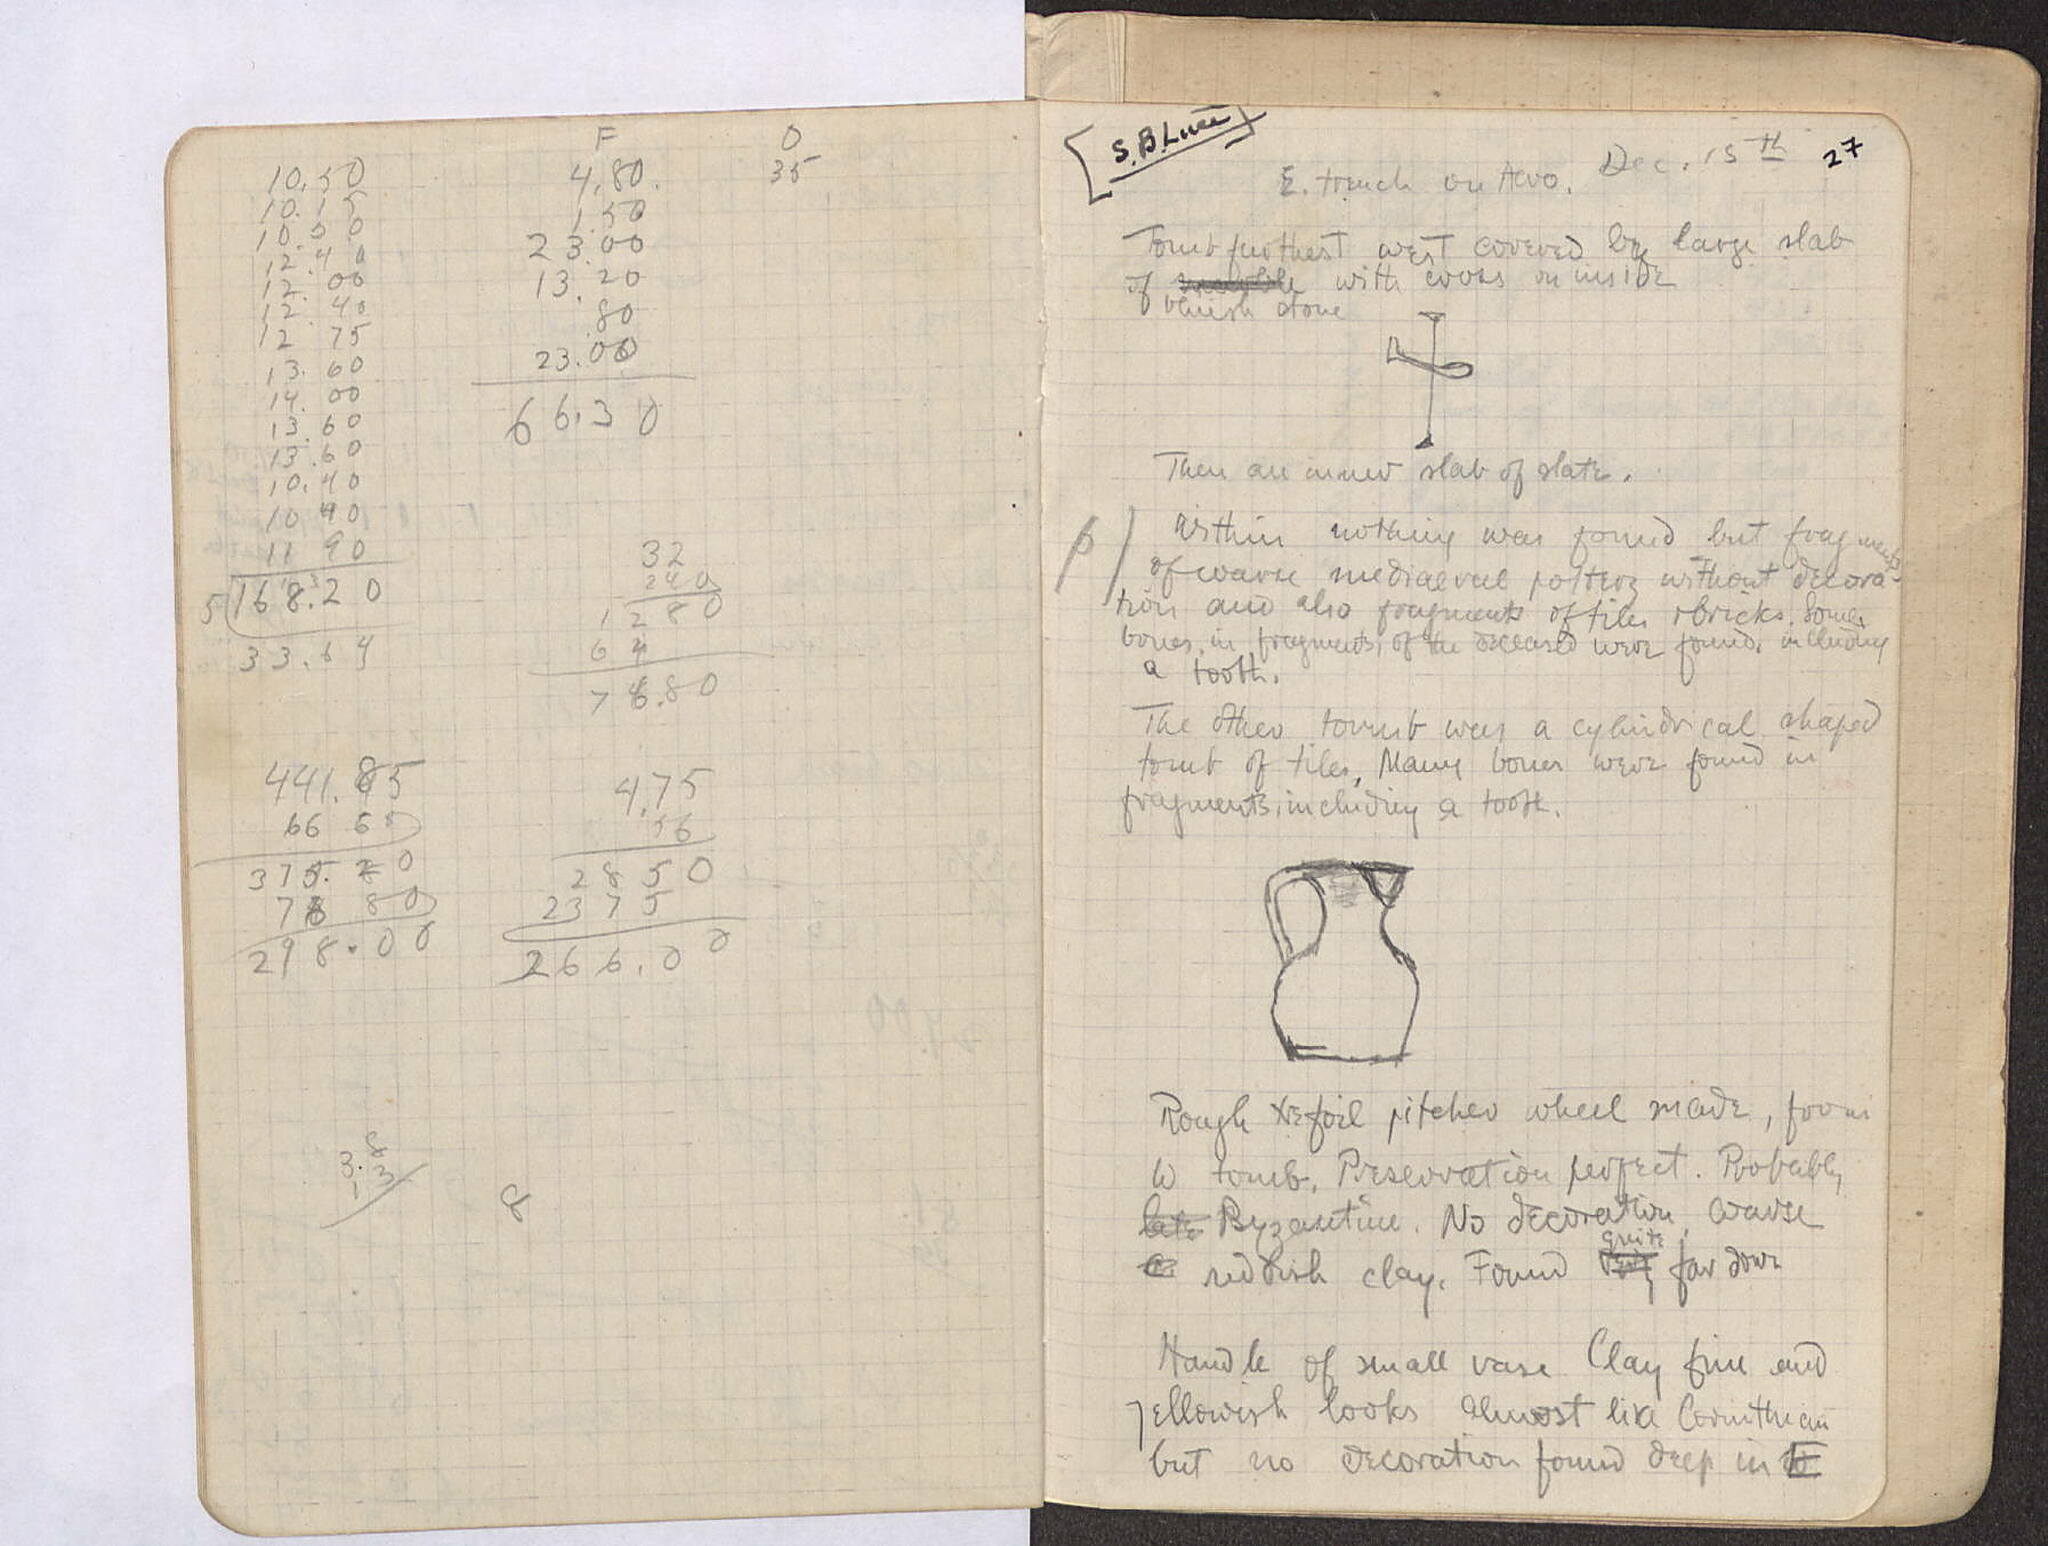 10.50
10.15
10.50
12.40
12.00
12.40
12 75
13.60
14.00
13.60
13.60
10.40
10 40
11 90
5 168.20
33.64
F
4,80.
1.50
23.00
13.20
.80
23.00
66.30
O
35
32
240
1280
64
7680
441.85
66 65
375.20
78 80
298.00
4,75
56
2850
2375
266.00
8
3.3
1
8
[S.B. Luce]
Dec. 15th
27
E. trench on Acro.
Tomb furthest west covered by large slab
of marble with cross on inside
bluish stone
Then an inner slab of slate.
Within nothing was found but fragments
of coarse mediaeval pottery without decora-
tion and also fragments of tiles & bricks. Some
bones, in fragments, of the deceased were found, including
a tooth.
The other tomb was a cylindrical shaped
tomb of tiles, Many bones were found in
fragments, including a tooth.
Rough trefoil pitcher wheel made, from
W tomb. Preservation perfect. Probably
late Byzantine. No decoration, coarse
reddish clay. Found very quite far down
Handle of small vase Clay fine and
yellowish looks almost like Corinthian
but no decoration found deep in E